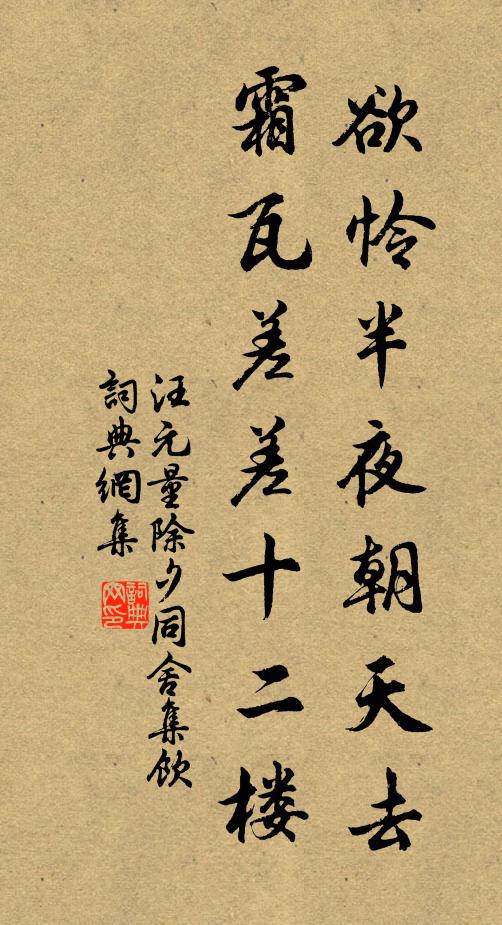 欲怜半夜朝天去
霜瓦差差十二楼
汪元量除夕同舍集饮
詞典網集
詞典网印